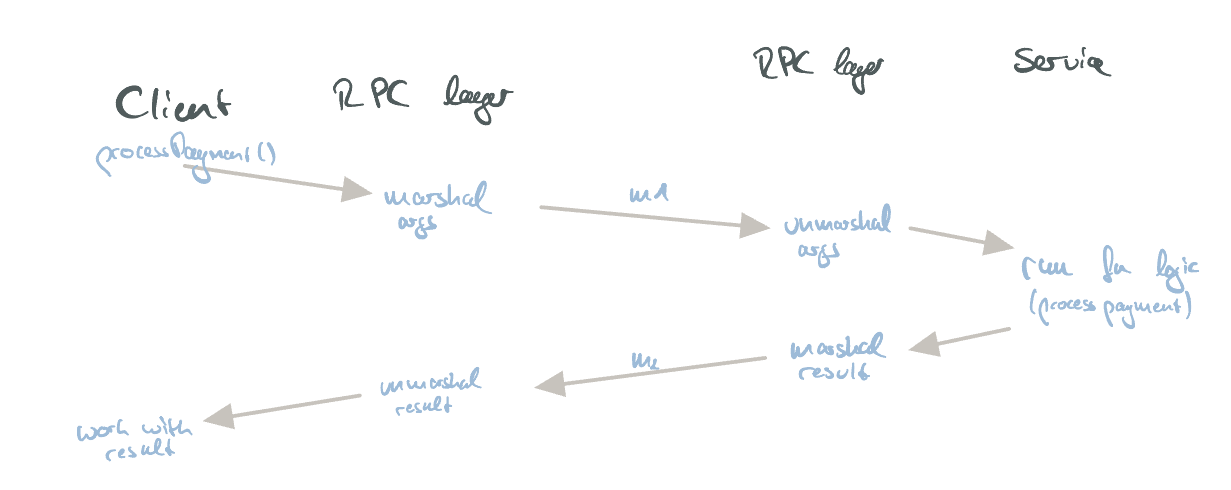 Client
RPC layer
RPC layer
Service
processPayment()
marshal
args
m1
unmarshal
args
run fn logic
(process payment)
marshal
result
m2
unmarshal
result
work with
result